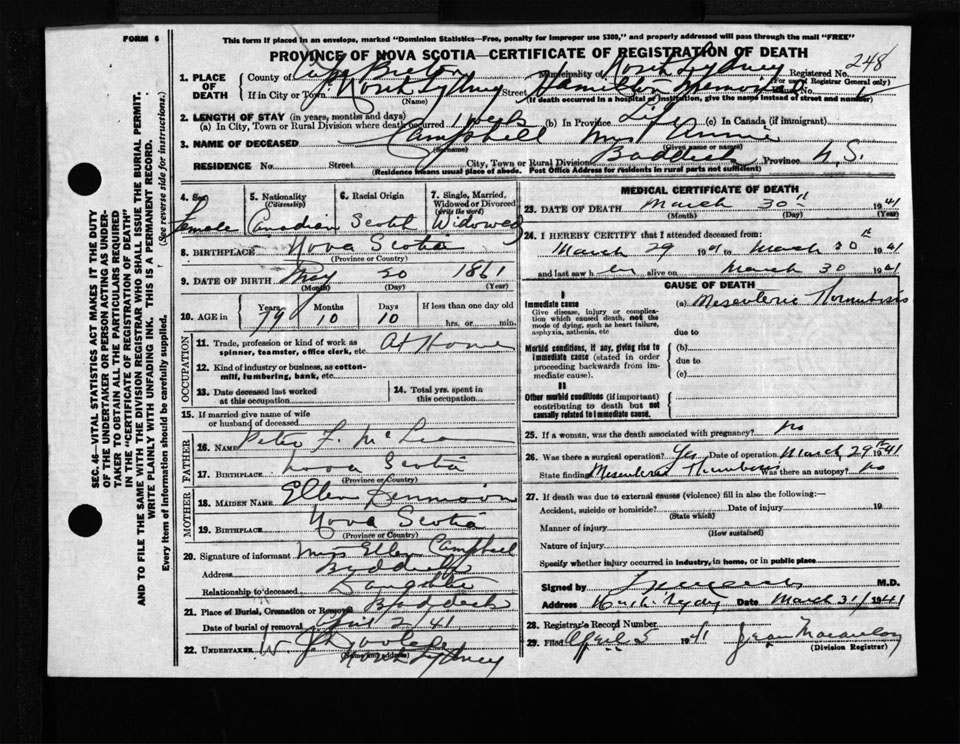 FORM 6
This form if placed in an envelope, marked "Dominion Statistics—Free, penalty for improper use $300," and properly addressed will pass through the mail "FREE"
PROVINCE OF NOVA SCOTIA—CERTIFICATE OF REGISTRATION OF DEATH
1. PLACE OF DEATH County of Cape Breton Municipality of North Sydney Registered No. 248
(For use of Registrar General only)
If in City or Town North Sydney Street Hamilton Memorial No.
(Name) (If death occurred in a hospital or institution, give the name instead of street and number)
2. LENGTH OF STAY (in years, months and days)
(a) In City, Town or Rural Division where death occurred 1 week (b) In Province Life (c) In Canada (if immigrant)
3. NAME OF DECEASED Campbell Mrs Annie
(Surname) (Given name or names)
RESIDENCE No. Street City, Town or Rural Division Baddeck Province N.S.
(Residence means usual place of abode. Post Office Address for residents in rural parts not sufficient)
4. Sex 5. Nationality (Citizenship) 6. Racial Origin 7. Single, Married, Widowed or Divorced (write the word)
Female Canadian Scotch Widowed
8. BIRTHPLACE Nova Scotia
(Province or Country)
9. DATE OF BIRTH May 20 1861
(Month) (Day) (Year)
10. AGE in Years Months Days If less than one day old
79 10 10 hrs. or min.
OCCUPATION
11. Trade, profession or kind of work as spinner, teamster, office clerk, etc. At Home
12. Kind of industry or business, as cotton-mill, lumbering, bank, etc.
13. Date deceased last worked at this occupation
14. Total yrs. spent in this occupation
15. If married give name of wife or husband of deceased
FATHER
16. NAME Peter F. McLean
17. BIRTHPLACE Nova Scotia
(Province or Country)
MOTHER
18. MAIDEN NAME Ellen
19. BIRTHPLACE Nova Scotia
(Province or Country)
20. Signature of informant Miss Ellen Campbell
Address Baddeck
Relationship to deceased Daughter
21. Place of Burial, Cremation or Removal Baddeck
Date of burial or removal April 2/41
22. UNDERTAKER W. J. Dooley
(Name and address)
North Sydney
MEDICAL CERTIFICATE OF DEATH
23. DATE OF DEATH March 30th 1941
(Month) (Day) (Year)
24. I HEREBY CERTIFY that I attended deceased from:
March 29 1941 to March 30th 1941
and last saw her alive on March 30 1941
CAUSE OF DEATH
I
Immediate cause (a) Mesenteric Thrombosis
Give disease, injury or complication which caused death, not the mode of dying, such as heart failure, asphyxia, asthenia, etc
due to
Morbid conditions, if any, giving rise to immediate cause (stated in order proceeding backwards from immediate cause).
(b)
due to
(c)
II
Other morbid conditions (if important) contributing to death but not causally related to immediate cause.
25. If a woman, was the death associated with pregnancy? no
26. Was there a surgical operation? Yes Date of operation March 29th 1941
State finding Mesenteric Thrombosis Was there an autopsy? no
27. If death was due to external causes (violence) fill in also the following:—
Accident, suicide or homicide? Date of injury 19
(State which)
Manner of injury
(How sustained)
Nature of injury
Specify whether injury occurred in industry, in home, or in public place
Signed by M.D.
Address North Sydney Date March 31/1941
28. Registrar's Record Number
29. Filed April 5 1941 Jean Macaulay
(Division Registrar)
SEC. 46—VITAL STATISTICS ACT MAKES IT THE DUTY
OF THE UNDERTAKER OR PERSON ACTING AS UNDERTAKER TO OBTAIN ALL THE PARTICULARS REQUIRED
IN THE "CERTIFICATE OF REGISTRATION OF DEATH"
AND TO FILE THE SAME WITH THE DIVISION REGISTRAR WHO SHALL ISSUE THE BURIAL PERMIT.
WRITE PLAINLY WITH UNFADING INK. THIS IS A PERMANENT RECORD.
Every item of information should be carefully supplied. (See reverse side for instructions.)